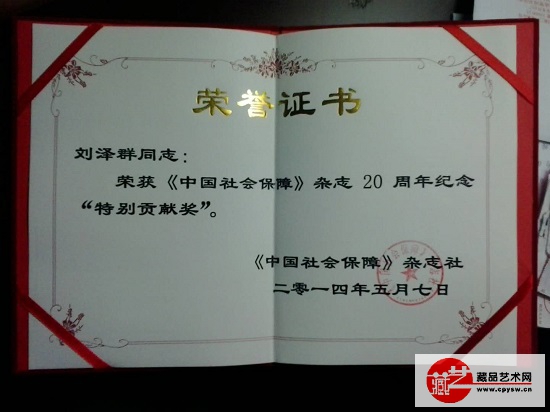 荣誉证书
刘泽群同志：
荣获《中国社会保障》杂志 20 周年纪念
“特别贡献奖”。
《中国社会保障》杂志社
二零一四年五月七日
藏艺
藏品艺术网
www.cpysw.cn